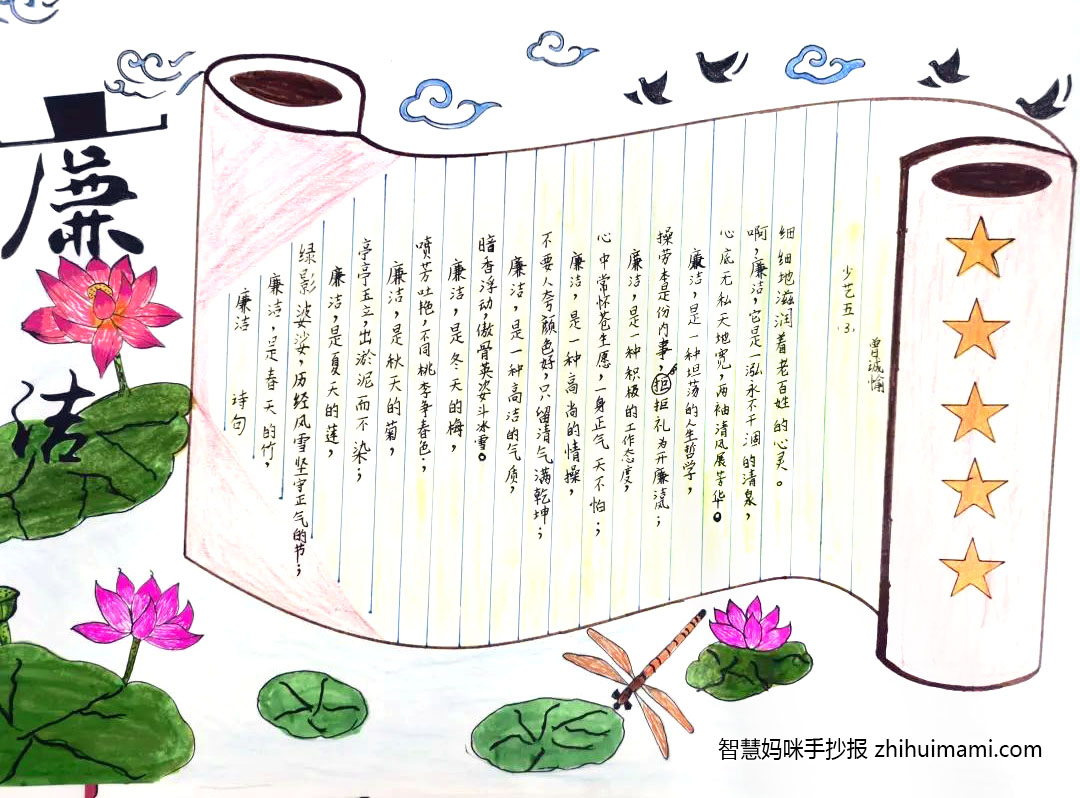 廉
洁
廉洁 诗句
廉洁,是春天的竹,
绿影婆娑,历经风雪坚守正气的节;
廉洁,是夏天的莲,
亭亭玉立,出淤泥而不染;
廉洁,是秋天的菊,
喷芳吐艳,不同桃李争春色;
廉洁,是冬天的梅,
暗香浮动,傲骨英姿斗冰雪。
廉洁,是一种高洁的气质,
不要人夸颜色好,只留清气满乾坤;
廉洁,是一种高尚的情操,
心中常怀苍生愿,一身正气天不怕;
廉洁,是一种积极的工作态度,
操劳本是份内事,拒礼为开廉洁风;
廉洁,是一种坦荡的人生哲学,
心底无私天地宽,两袖清风展芳华。
啊,廉洁,它是一泓永不干涸的清泉,
细细地滋润着老百姓的心灵。
少艺五.3.
曾诚愉
智慧妈咪手抄报 zhihuimami.com